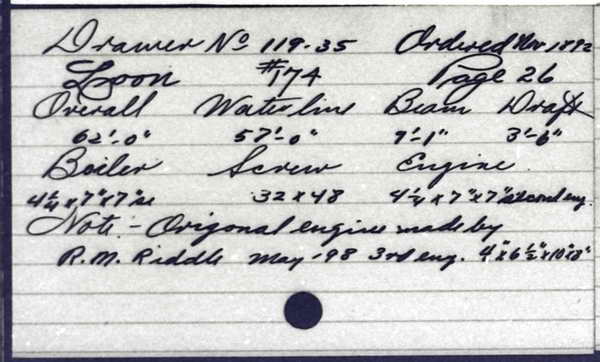 Drawer No 119-35 Ordered Nov. 1892
Loon #174 Page 26
Overall Waterline Beam Draft
62'-0" 57'-0" 9'-1" 3'-6"
Boiler Screw Engine
4¼ x 7" x 7" 32 x 48 4¼ x 7" x 7" second eng.
Note:- Origonal engine made by
R.M. Riddle May-98 3rd eng. 4" x 6½" x 10" x 8"